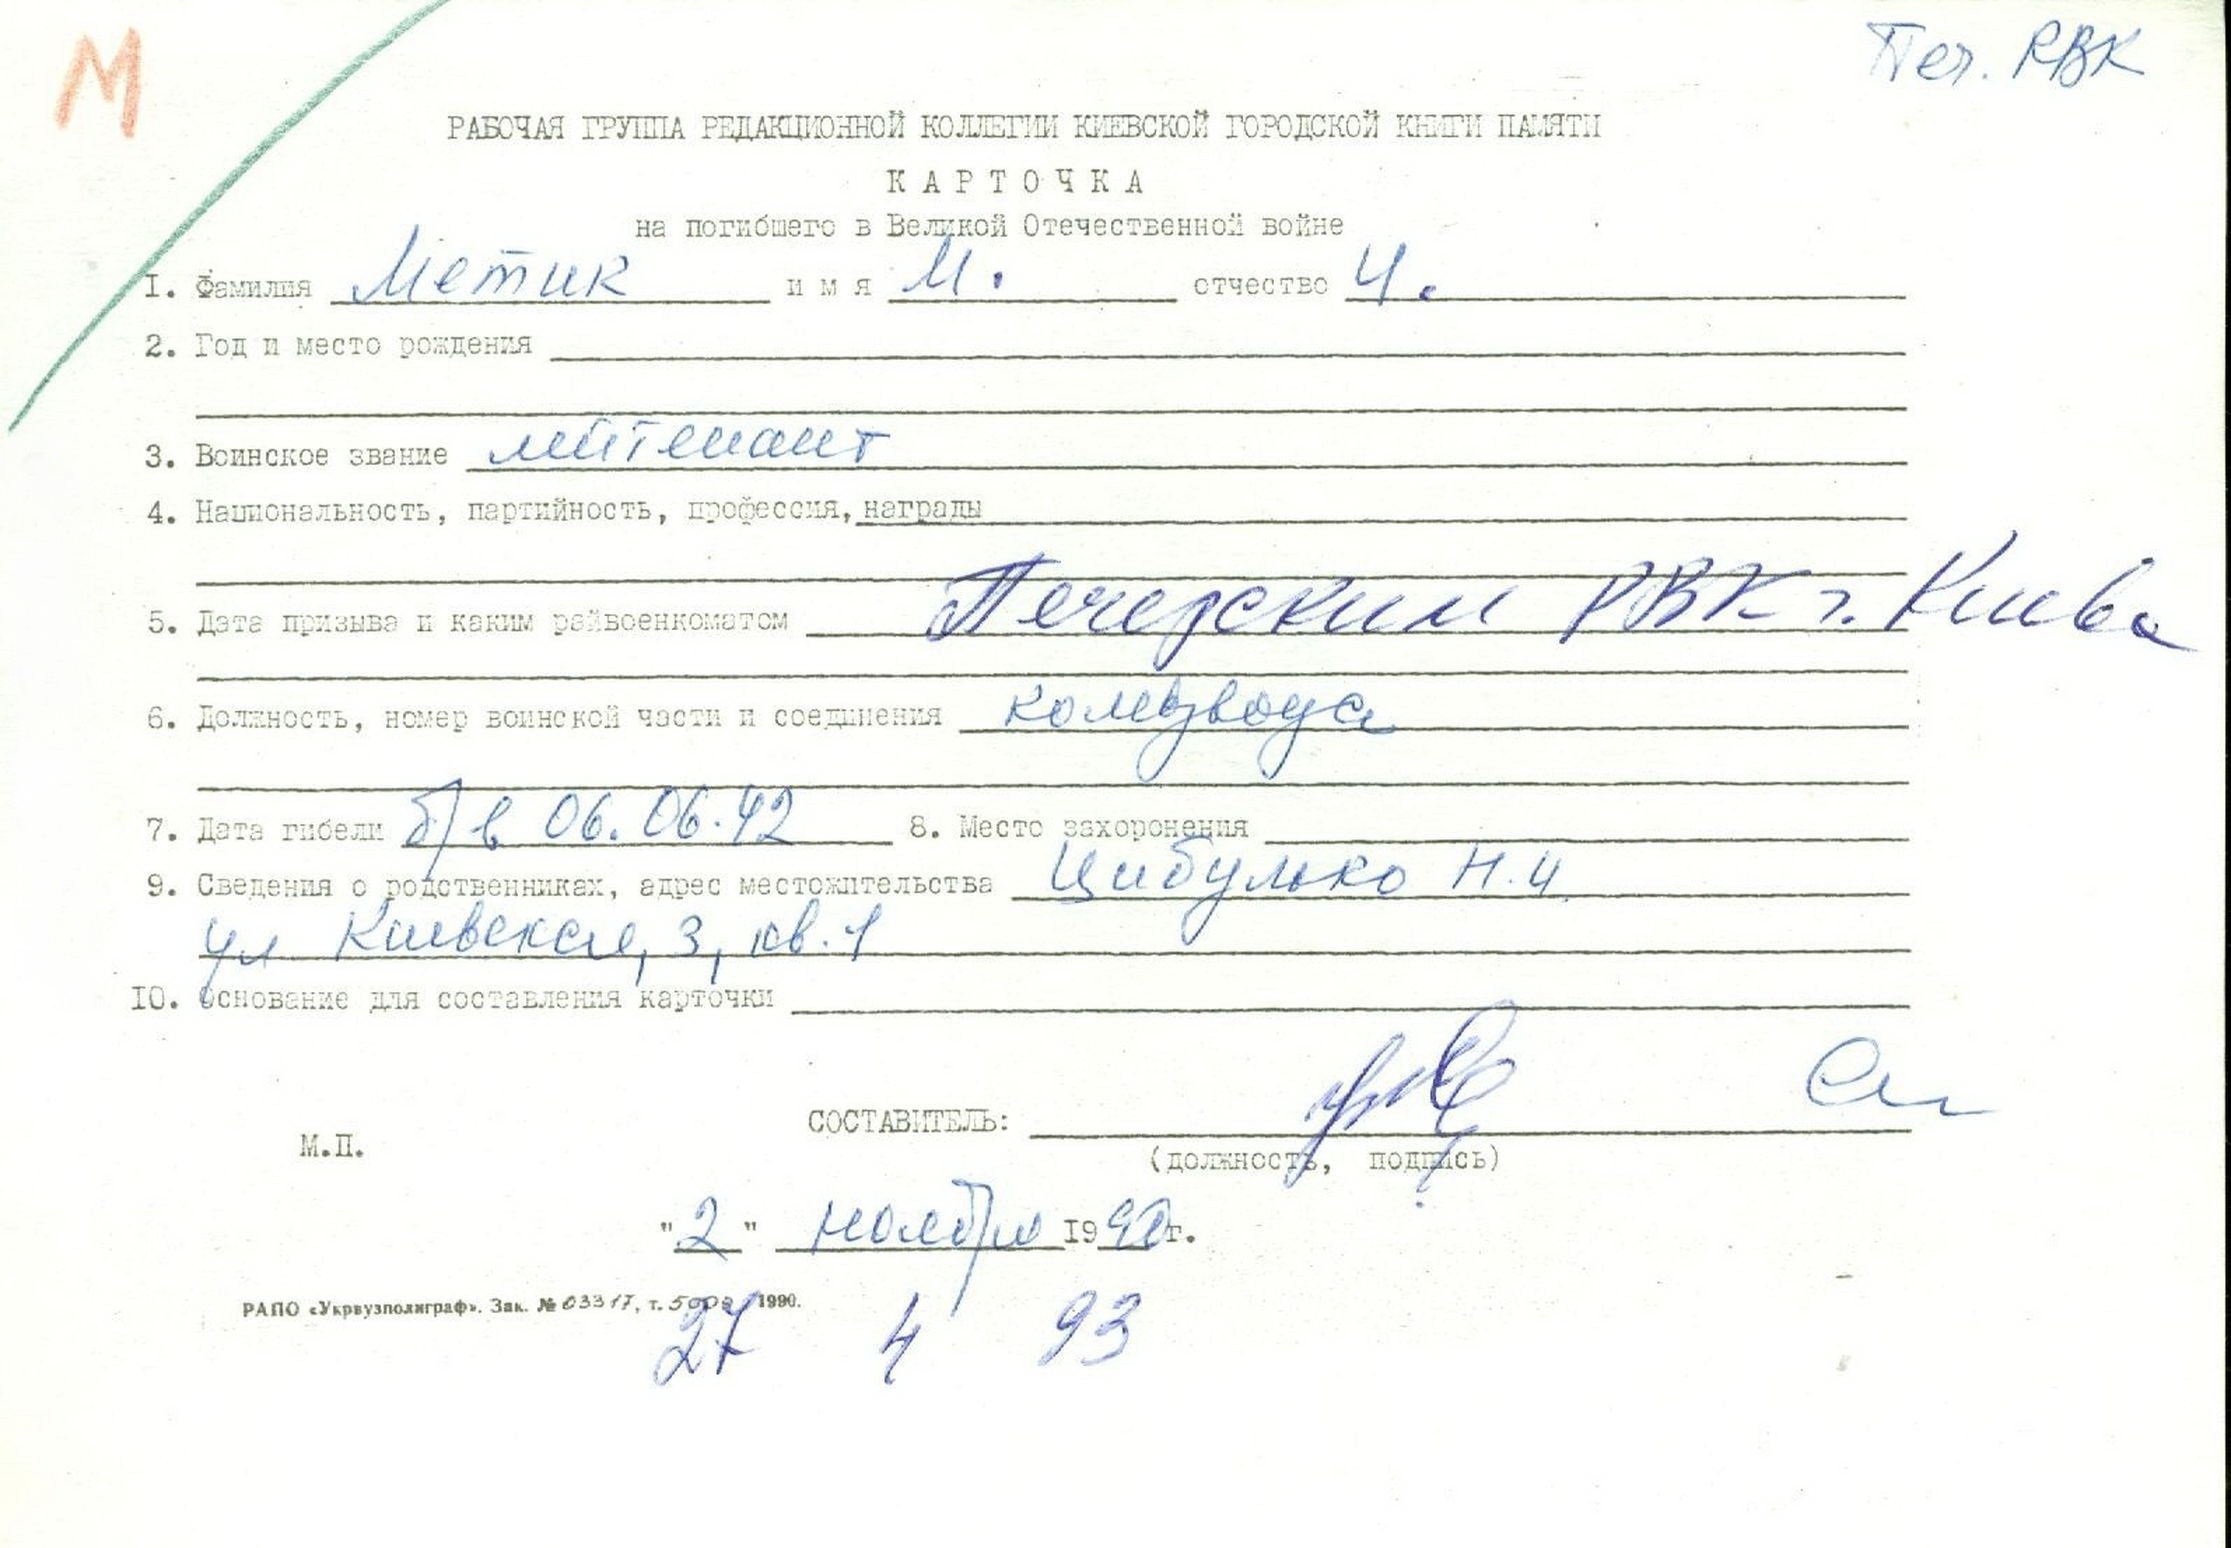 М
Печ. РВК
РАБОЧАЯ ГРУППА РЕДАКЦИОННОЙ КОЛЛЕГИИ КИЕВСКОЙ ГОРОДСКОЙ КНИГИ ПАМЯТИ
КАРТОЧКА
на погибшего в Великой Отечественной войне
1. Фамилия Метик имя М. отчество И.
2. Год и место рождения
3. Воинское звание лейтенант
4. Национальность, партийность, профессия, награды
5. Дата призыва и каким райвоенкоматом Печерским РВК г. Киева
6. Должность, номер воинской части и соединения комвзвода
7. Дата гибели б/в 06.06.42 8. Место захоронения
9. Сведения о родственниках, адрес местожительства Цибулько Н.И.
ул Киевская, 3, кв. 1
10. Основание для составления карточки
СОСТАВИТЕЛЬ:
М.П.
(должность, подпись)
"2" ноября 1990г.
РАПО «Укрвузполиграф». Зак. № 03317, т. 5000, 1990.
27 4 93